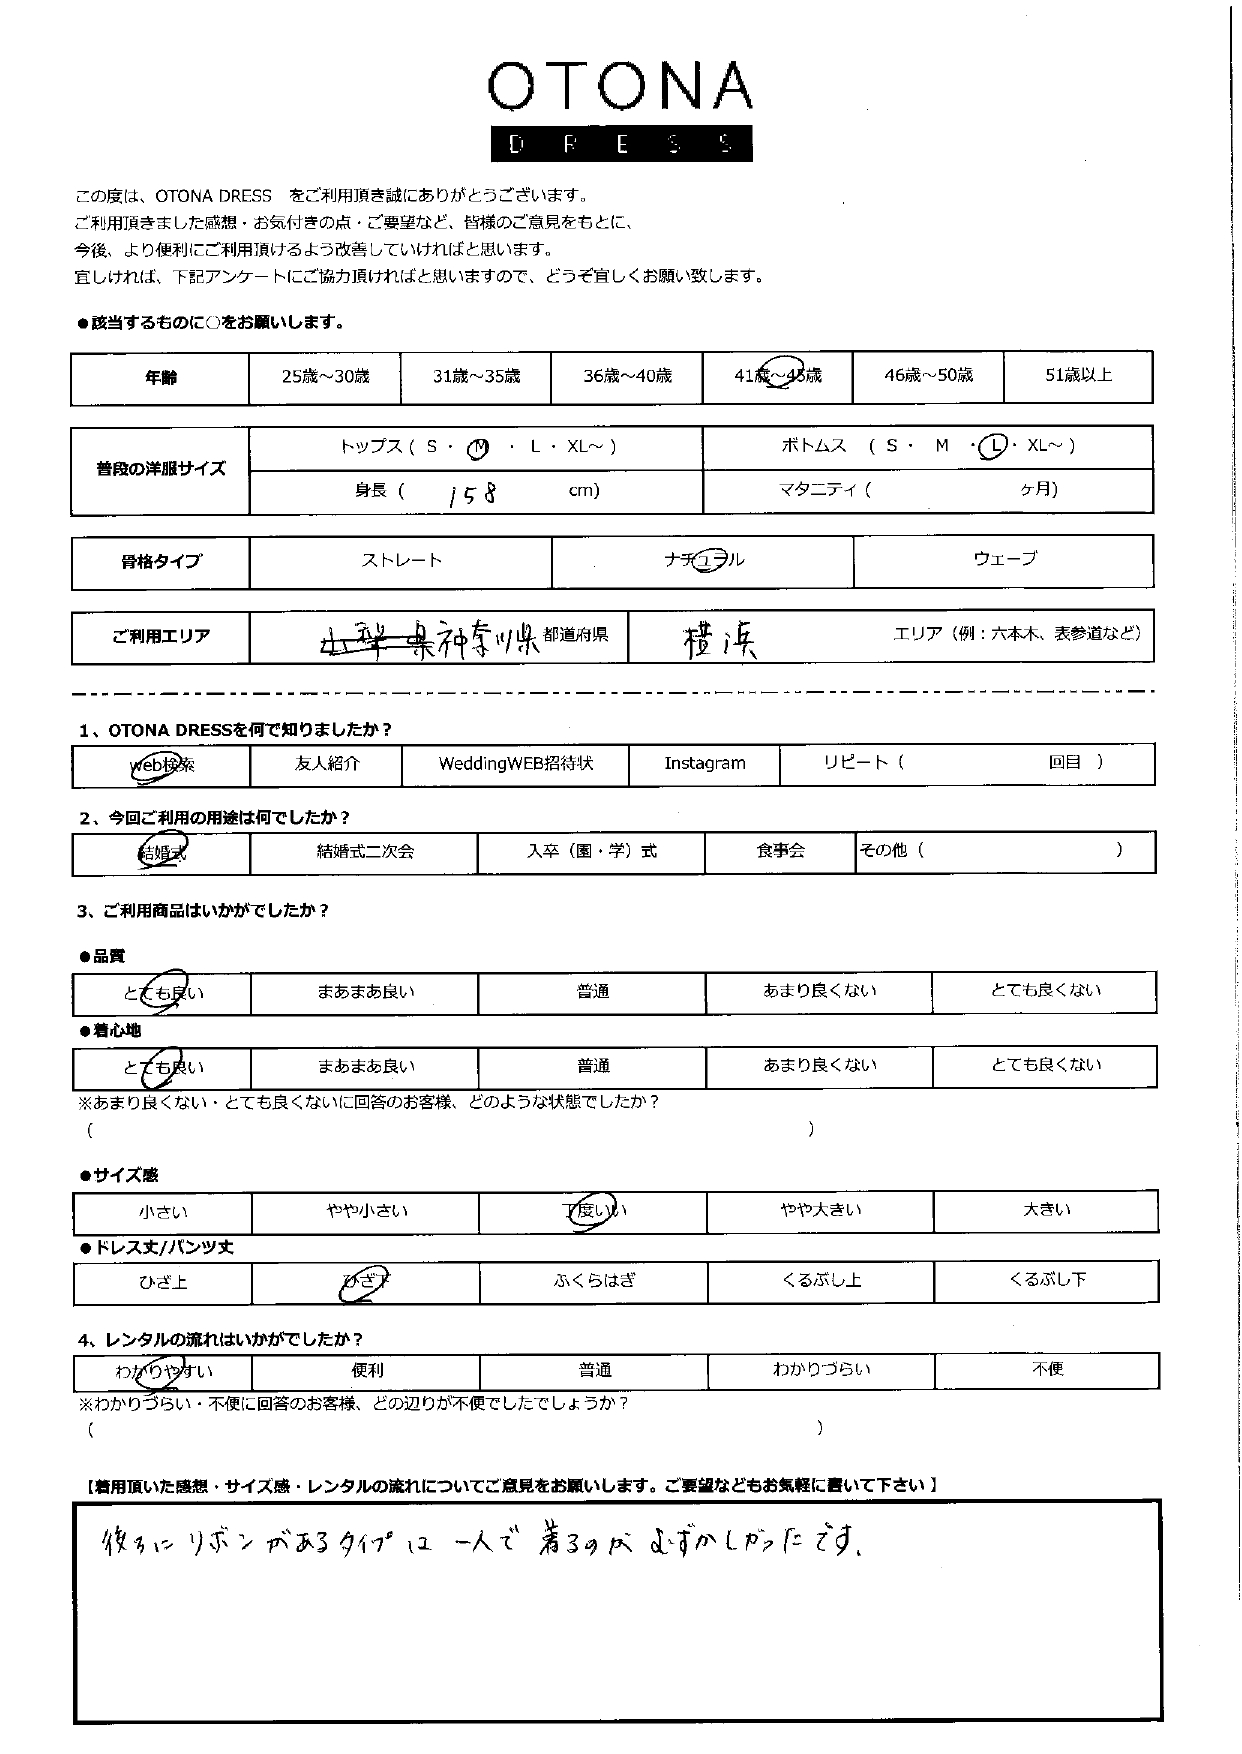 OTONA
DRESS
この度は、OTONA DRESS　をご利用頂き誠にありがとうございます。
ご利用頂きました感想・お気付きの点・ご要望など、皆様のご意見をもとに、
今後、より便利にご利用頂けるよう改善していければと思います。
宜しければ、下記アンケートにご協力頂ければと思いますので、どうぞ宜しくお願い致します。
●該当するものに○をお願いします。
年齢 25歳～30歳 31歳～35歳 36歳～40歳 41歳～45歳 46歳～50歳 51歳以上
普段の洋服サイズ トップス ( S ・ M ・ L ・ XL～ ) ボトムス ( S ・ M ・ L ・ XL～ )
身長 ( 158 cm) マタニティ ( ヶ月)
骨格タイプ ストレート ナチュラル ウェーブ
ご利用エリア 山梨県神奈川県 都道府県 横浜 エリア（例：六本木、表参道など）
1、OTONA DRESSを何で知りましたか？
web検索 友人紹介 WeddingWEB招待状 Instagram リピート ( 回目 )
2、今回ご利用の用途は何でしたか？
結婚式 結婚式二次会 入卒（園・学）式 食事会 その他 ( )
3、ご利用商品はいかがでしたか？
●品質
とても良い まあまあ良い 普通 あまり良くない とても良くない
●着心地
とても良い まあまあ良い 普通 あまり良くない とても良くない
※あまり良くない・とても良くないに回答のお客様、どのような状態でしたか？
( )
●サイズ感
小さい やや小さい 丁度いい やや大きい 大きい
●ドレス丈/パンツ丈
ひざ上 ひざ下 ふくらはぎ くるぶし上 くるぶし下
4、レンタルの流れはいかがでしたか？
わかりやすい 便利 普通 わかりづらい 不便
※わかりづらい・不便に回答のお客様、どの辺りが不便でしたでしょうか？
( )
【着用頂いた感想・サイズ感・レンタルの流れについてご意見をお願いします。ご要望などもお気軽に書いて下さい】
後ろにリボンがあるタイプは一人で着るのがむずかしかったです。